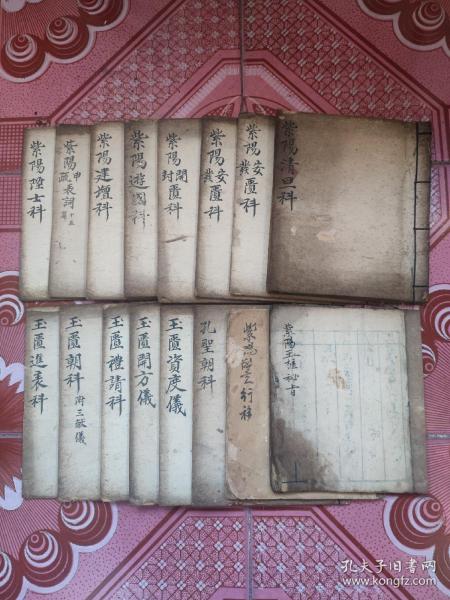 紫陽清旦科
紫陽安
發匱科
紫陽安
發匱科
紫陽開
封匱科
紫陽遊國科
紫陽建壇科
紫陽申
疏表詞
紫陽陞士科
紫陽玉匱秘旨
孔聖朝科
玉匱資度儀
玉匱開方儀
玉匱禮請科
玉匱朝科 附三獻儀
玉匱進表科
孔夫子旧书网
www.kongfz.com